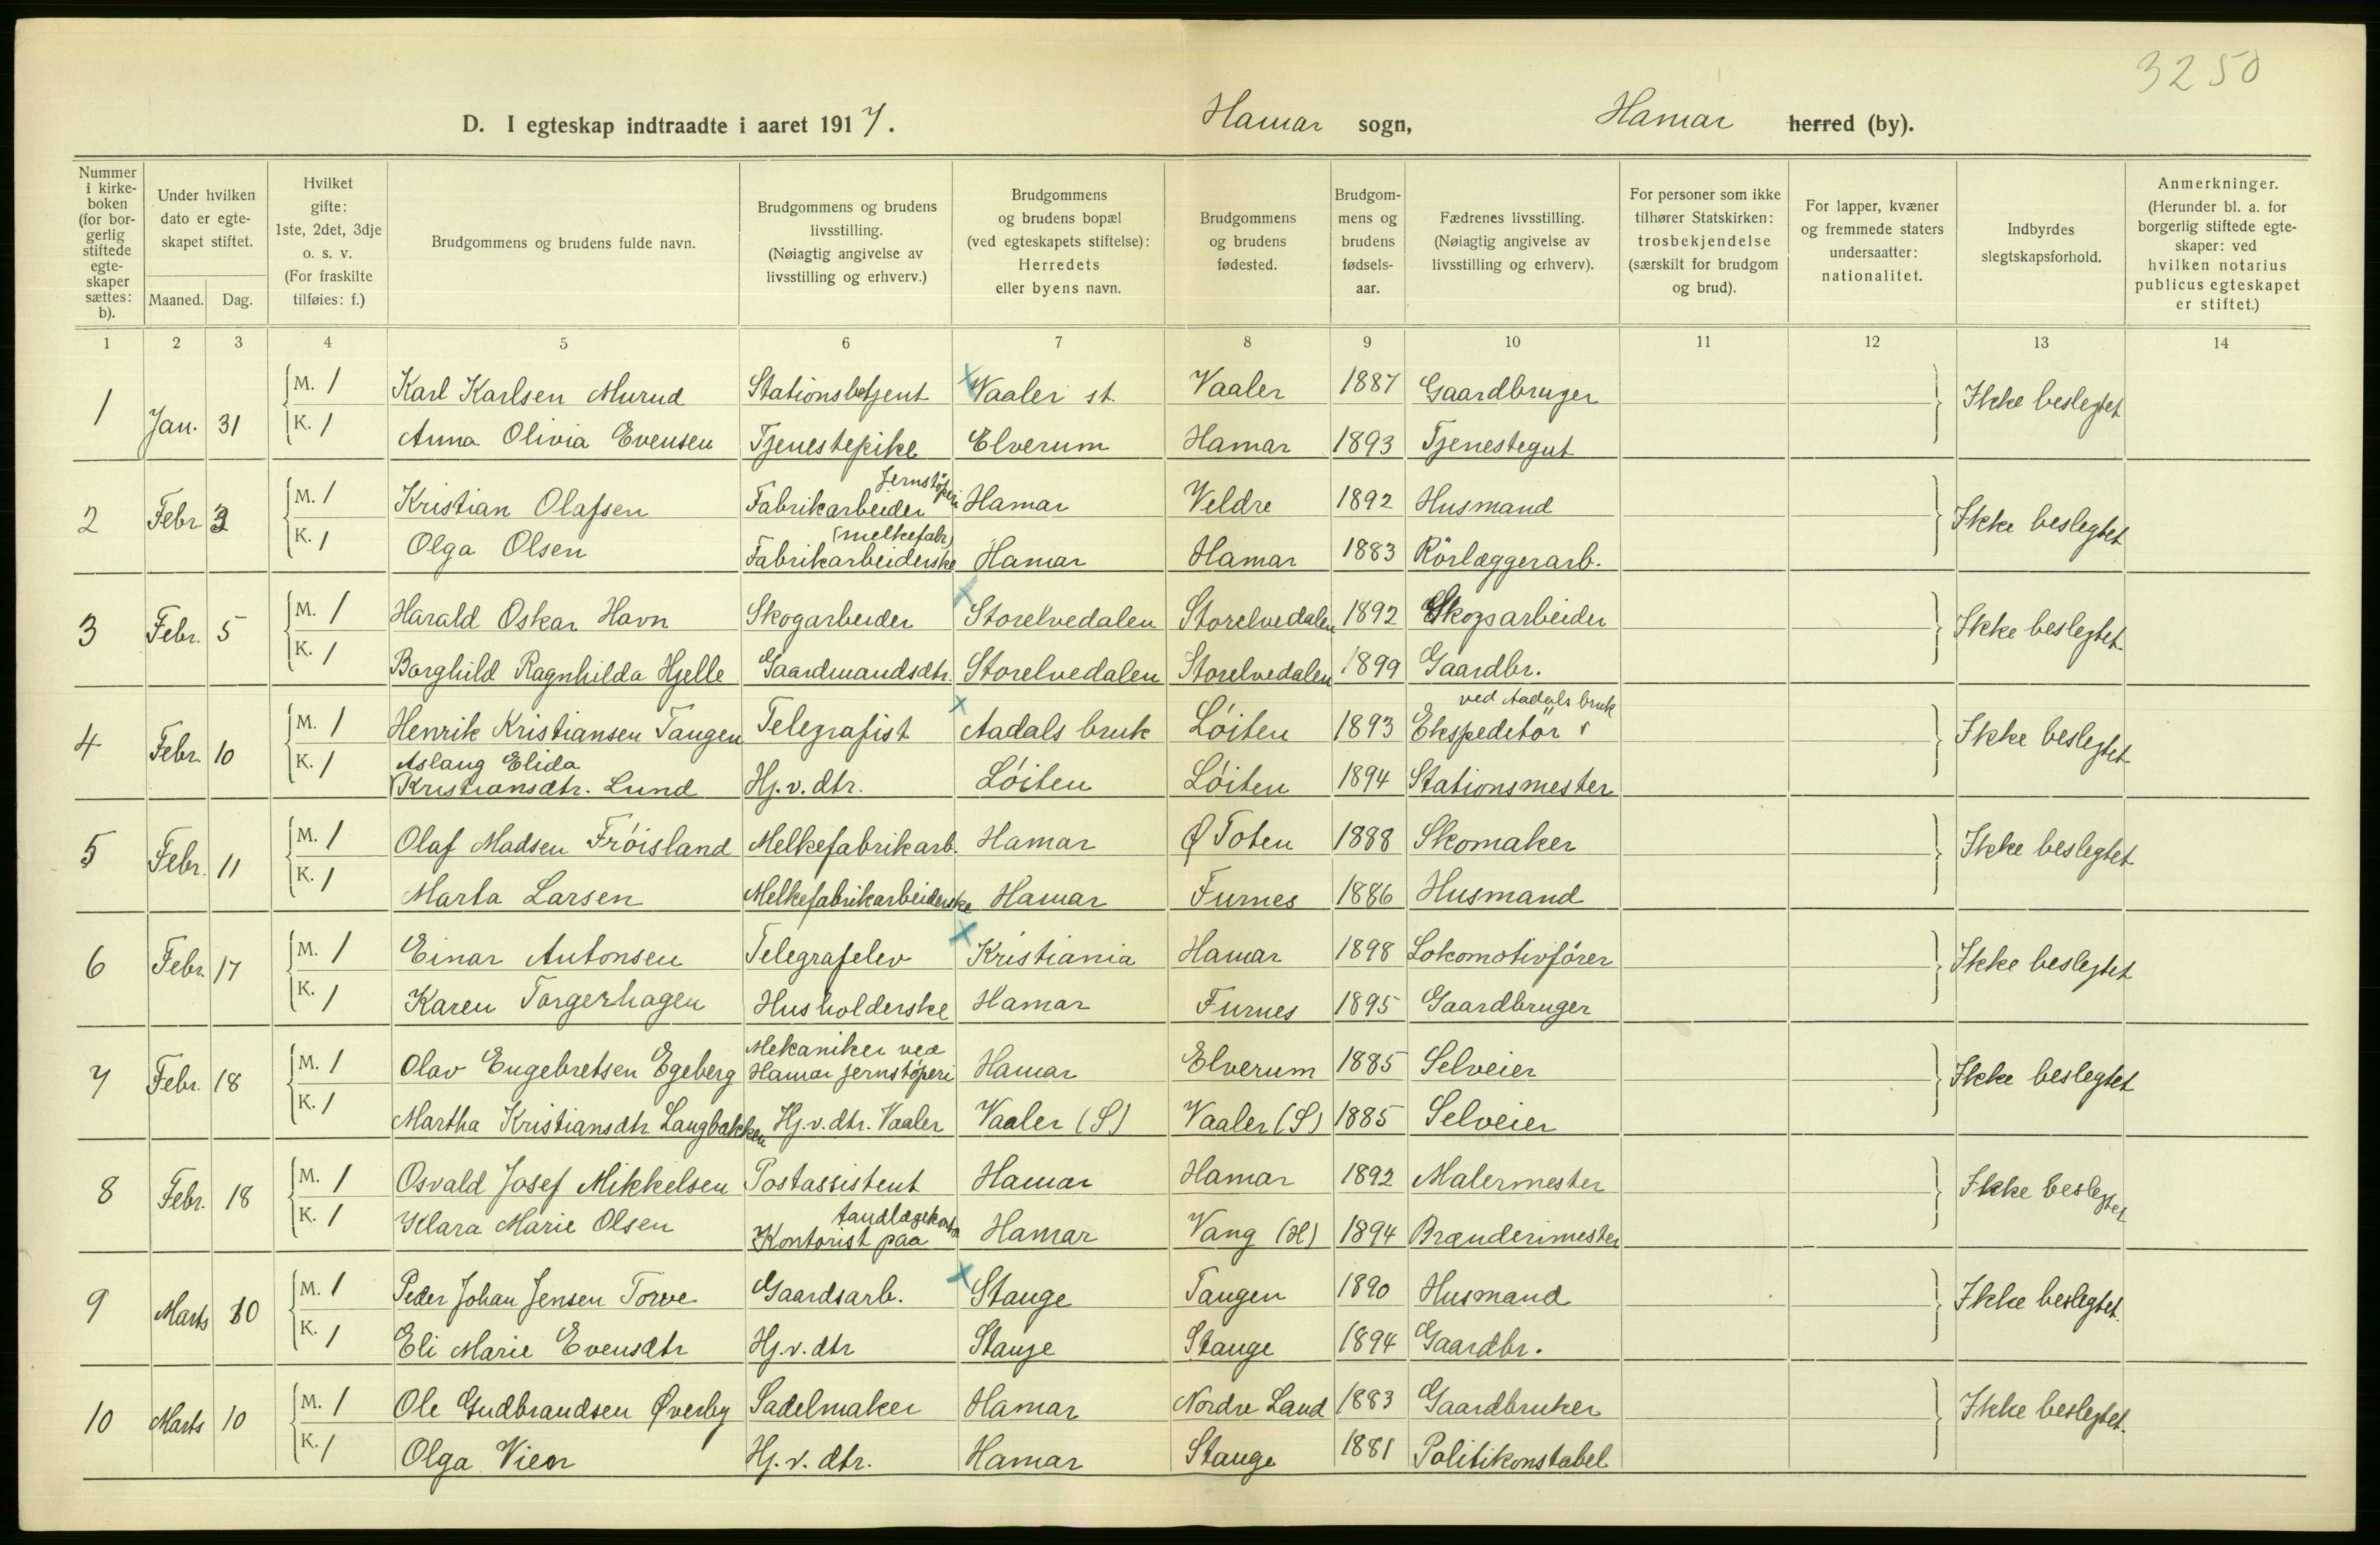 3250
D. I egteskap indtraadte i aaret 1917. Hamar sogn, Hamar herred (by).
Nummer i kirkeboken (for borgerlig stiftede egteskaper sættes: b).
Under hvilken dato er egteskapet stiftet.
Maaned. Dag.
Hvilket gifte: 1ste, 2det, 3dje o. s. v. (For fraskilte tilføies: f.)
Brudgommens og brudens fulde navn.
Brudgommens og brudens livsstilling. (Nøiagtig angivelse av livsstilling og erhverv.)
Brudgommens og brudens bopæl (ved egteskapets stiftelse): Herredets eller byens navn.
Brudgommens og brudens fødested.
Brudgommens og brudens fødselsaar.
Fædrenes livsstilling. (Nøiagtig angivelse av livsstilling og erhverv).
For personer som ikke tilhører Statskirken: trosbekjendelse (særskilt for brudgom og brud).
For lapper, kvæner og fremmede staters undersaatter: nationalitet.
Indbyrdes slegtskapsforhold.
Anmerkninger. (Herunder bl. a. for borgerlig stiftede egteskaper: ved hvilken notarius publicus egteskapet er stiftet.)
1 2 3 4 5 6 7 8 9 10 11 12 13 14
1 Jan. 31 M. 1 Karl Karlsen Murud Stationsbetjent Vaaler st. Vaaler 1887 Gaardbruger Ikke beslegtet
K. 1 Anna Olivia Evensen Tjenestepike Elverum Hamar 1893 Tjenestegut
2 Febr. 3 M. 1 Kristian Olafsen Fabrikarbeider Jernstöperi Hamar Veldre 1892 Husmand Ikke beslegtet
K. 1 Olga Olsen Fabrikarbeiderske (melkefabr) Hamar Hamar 1883 Rörlæggerarb.
3 Febr. 5 M. 1 Harald Oskar Havn Skogarbeider Storelvedalen Storelvedalen 1892 Skogsarbeider Ikke beslegtet
K. 1 Borghild Ragnhilda Hjelle Gaardmandsdtr. Storelvedalen Storelvedalen 1899 Gaardbr.
4 Febr. 10 M. 1 Henrik Kristiansen Tangen Telegrafist Aadals bruk Löiten 1893 Ekspeditör ved Aadals bruk Ikke beslegtet
K. 1 Aslaug Elida Kristiansdtr. Lund Hj.v.dtr. Löiten Löiten 1894 Stationsmester
5 Febr. 11 M. 1 Olaf Madsen Fröisland Melkefabrikarb. Hamar Ø Toten 1888 Skomaker Ikke beslegtet
K. 1 Marta Larsen Melkefabrikarbeiderske Hamar Furnes 1886 Husmand
6 Febr. 17 M. 1 Einar Antonsen Telegrafelev Kristiania Hamar 1898 Lokomotivförer Ikke beslegtet
K. 1 Karen Torgerhagen Husholderske Hamar Furnes 1895 Gaardbruger
7 Febr. 18 M. 1 Olav Engebretsen Egeberg Mekaniker ved Hamar jernstöperi Hamar Elverum 1885 Selveier Ikke beslegtet
K. 1 Martha Kristiansdtr Langbakken Hj.v.dtr. Vaaler Vaaler (S) Vaaler (S) 1885 Selveier
8 Febr. 18 M. 1 Osvald Josef Mikkelsen Postassistent Hamar Hamar 1892 Malermester Ikke beslegtet
K. 1 Klara Marie Olsen Kontorist paa tandlægekontor Hamar Vang (H) 1894 Brænderimester
9 Marts 10 M. 1 Peder Johan Jensen Torve Gaardsarb. Stange Tangen 1890 Husmand Ikke beslegtet.
K. 1 Eli Marie Evensdtr Hj.v.dtr Stange Stange 1894 Gaardbr.
10 Marts 10 M. 1 Ole Gudbrandsen Øverby Sadelmaker Hamar Nordre Land 1883 Gaardbruker Ikke beslegtet.
K. 1 Olga Vien Hj.v.dtr. Hamar Stange 1881 Politikonstabel